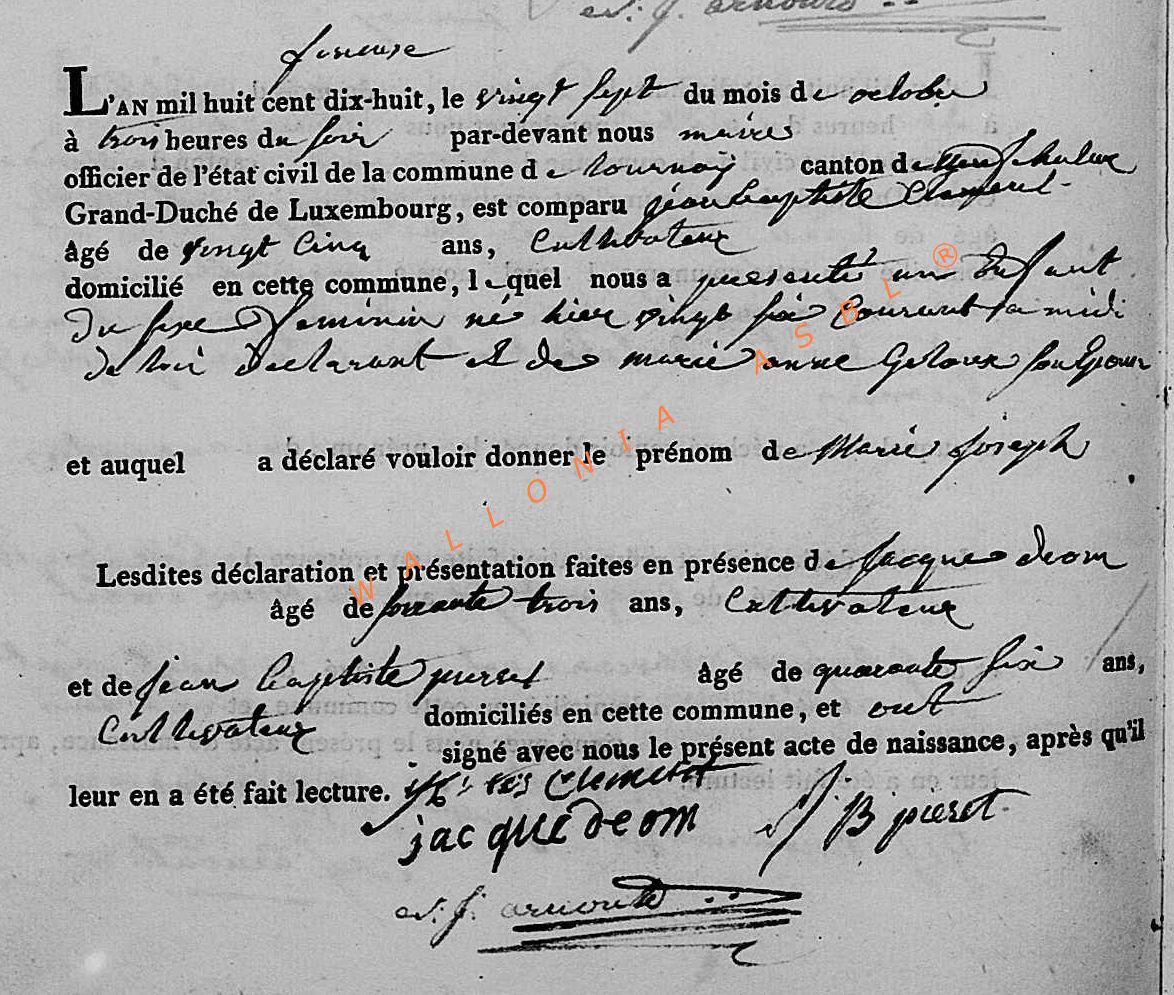 N. J. arnould
L'AN mil huit cent dix-huit, le vingt sept du mois de octobre
à trois heures du soir par-devant nous maire
officier de l'état civil de la commune de tournay canton de neufchateau
Grand-Duché de Luxembourg, est comparu jean baptiste Clement
âgé de vingt Cinq ans, Cultivateur
domicilié en cette commune, lequel nous a presenté un Enfant
du sexe feminin né hier vingt six Courant a midi
de lui Declarant et de marie anne son Epouse
et auquel a déclaré vouloir donner le prénom de Marie joseph
Lesdites déclaration et présentation faites en présence de jacque deom
âgé de soixante trois ans, Cultivateur
et de jean baptiste pierret âgé de quarante six ans,
Cultivateur domiciliés en cette commune, et ont
signé avec nous le présent acte de naissance, après qu'il
leur en a été fait lecture. Clement
jacque deom J B pieret
N. J. arnould
WALLONIA ASBL ®